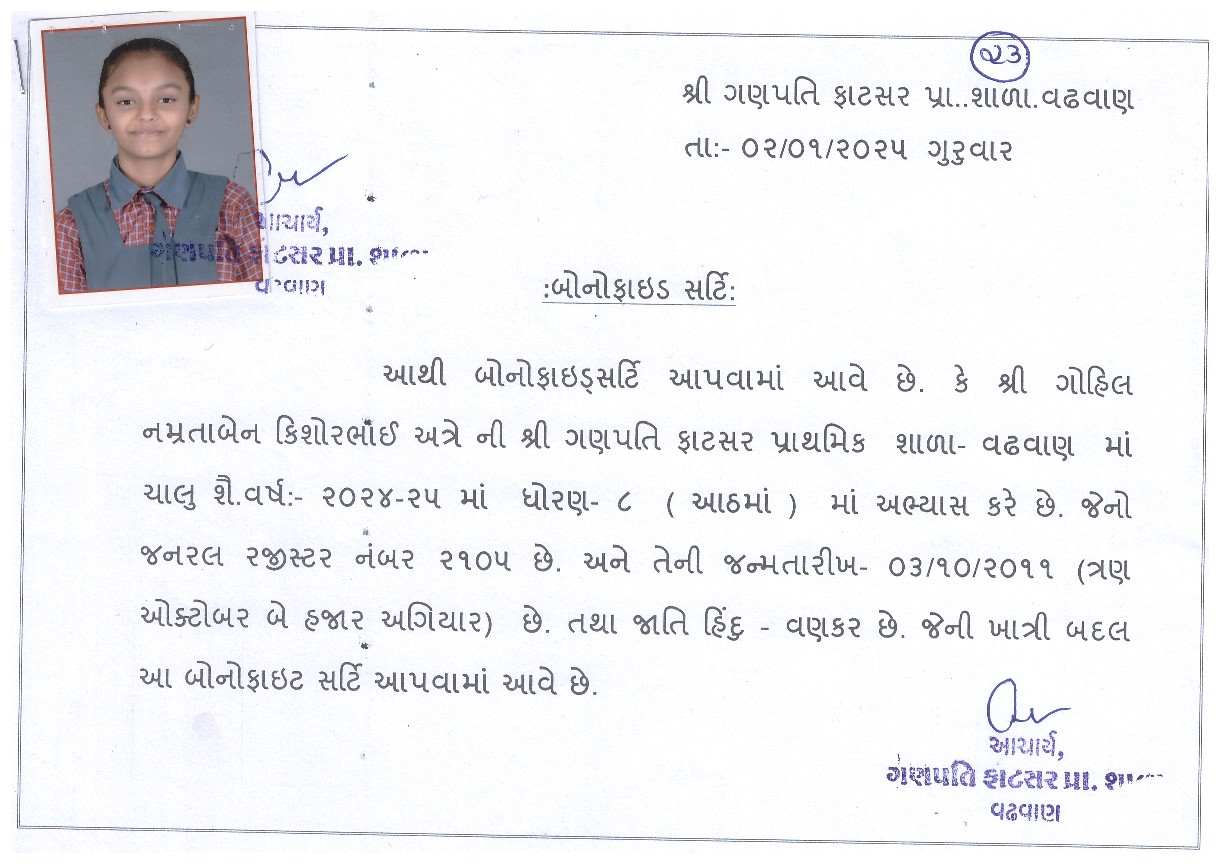 ૨૩
શ્રી ગણપતિ ફાટસર પ્રા..શાળા.વઢવાણ
તા:- ૦૨/૦૧/૨૦૨૫ ગુરુવાર
આચાર્ય,
ગણપતિ ફાટસર પ્રા. શાળા
વઢવાણ
:બોનોફાઇડ સર્ટિ:
આથી બોનોફાઇડ્સર્ટિ આપવામાં આવે છે. કે શ્રી ગોહિલ
નમ્રતાબેન કિશોરભાઈ અત્રે ની શ્રી ગણપતિ ફાટસર પ્રાથમિક શાળા- વઢવાણ માં
ચાલુ શૈ.વર્ષ:- ૨૦૨૪-૨૫ માં ધોરણ- ૮ ( આઠમાં ) માં અભ્યાસ કરે છે. જેનો
જનરલ રજીસ્ટર નંબર ૨૧૦૫ છે. અને તેની જન્મતારીખ- ૦૩/૧૦/૨૦૧૧ (ત્રણ
ઓક્ટોબર બે હજાર અગિયાર) છે. તથા જાતિ હિંદુ - વણકર છે. જેની ખાત્રી બદલ
આ બોનોફાઇટ સર્ટિ આપવામાં આવે છે.
આચાર્ય,
ગણપતિ ફાટસર પ્રા. શાળા
વઢવાણ